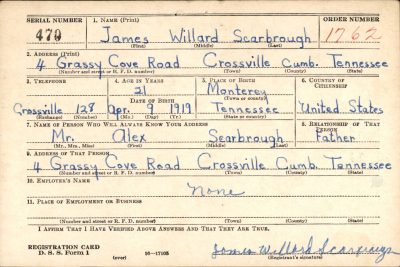 SERIAL NUMBER 1. NAME (Print) ORDER NUMBER
479 James Willard Scarbrough 1762
(First) (Middle) (Last)
2. ADDRESS (Print)
4 Grassy Cove Road Crossville Cumb. Tennessee
(Number and street or R. F. D. number) (Town) (County) (State)
3. TELEPHONE 4. AGE IN YEARS 5. PLACE OF BIRTH 6. COUNTRY OF CITIZENSHIP
21 Monterey
DATE OF BIRTH (Town or county)
Crossville 128 Apr. 9 1919 Tennessee United States
(Exchange) (Number) (Mo.) (Day) (Yr.) (State or country)
7. NAME OF PERSON WHO WILL ALWAYS KNOW YOUR ADDRESS 8. RELATIONSHIP OF THAT PERSON
Mr. Alex Scarbrough Father
(Mr., Mrs., Miss) (First) (Middle) (Last)
9. ADDRESS OF THAT PERSON
4 Grassy Cove Road Crossville Cumb. Tennessee
(Number and street or R. F. D. number) (Town) (County) (State)
10. EMPLOYER'S NAME
None
11. PLACE OF EMPLOYMENT OR BUSINESS
(Number and street or R. F. D. number) (Town) (County) (State)
I AFFIRM THAT I HAVE VERIFIED ABOVE ANSWERS AND THAT THEY ARE TRUE.
REGISTRATION CARD James Willard Scarbrough
D. S. S. Form 1 (over) 16—17105 (Registrant's signature)